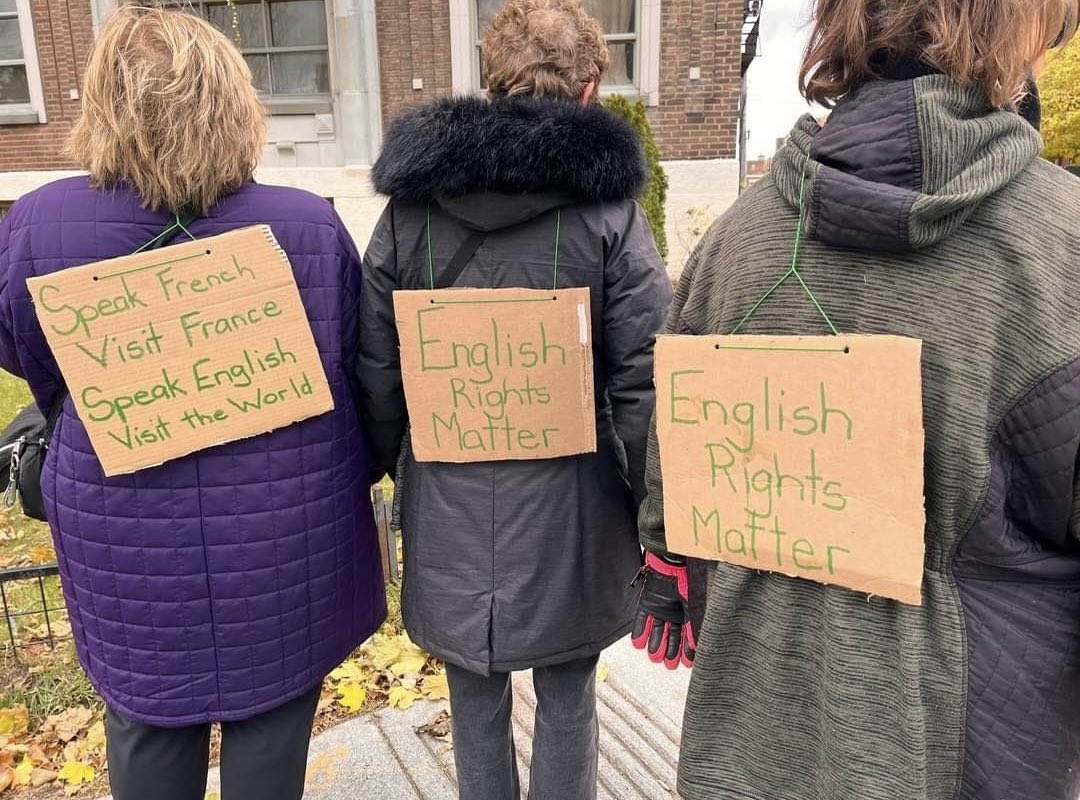 Speak French
Visit France
Speak English
Visit the World
English
Rights
Matter
English
Rights
Matter